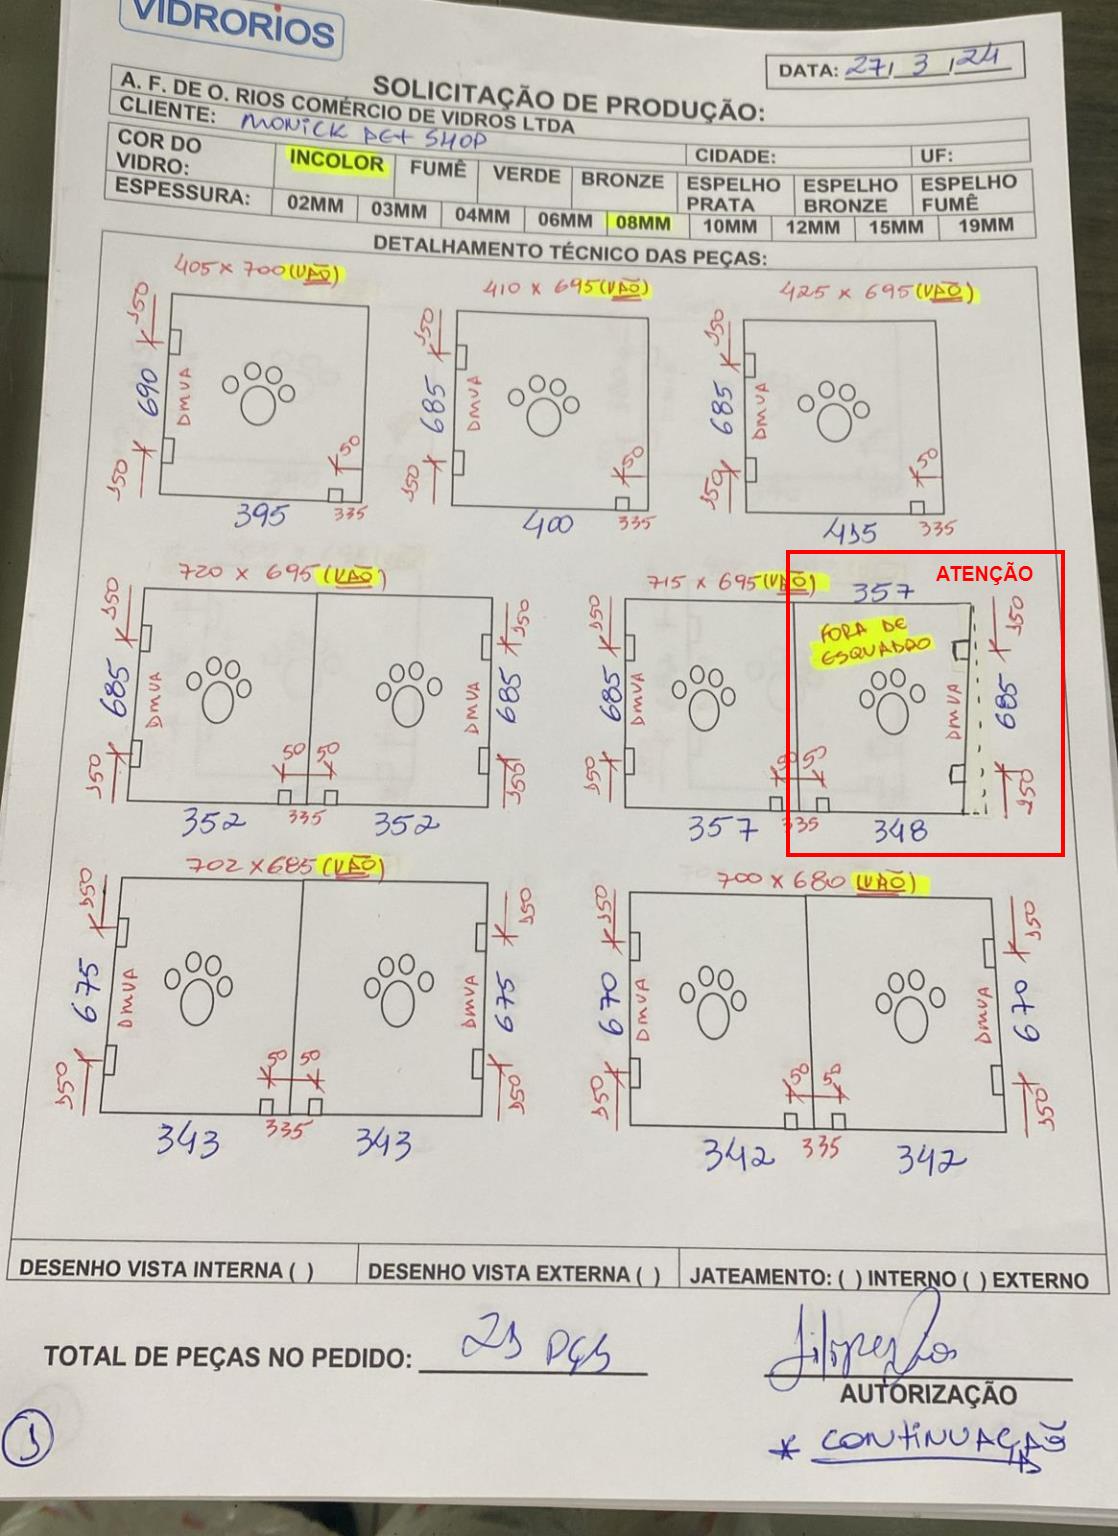 VIDRORIOS
DATA: 27/3/24
SOLICITAÇÃO DE PRODUÇÃO:
A. F. DE O. RIOS COMÉRCIO DE VIDROS LTDA
CLIENTE: MONICK PET SHOP
CIDADE: UF:
COR DO VIDRO: INCOLOR FUMÊ VERDE BRONZE ESPELHO PRATA ESPELHO BRONZE ESPELHO FUMÊ
ESPESSURA: 02MM 03MM 04MM 06MM 08MM 10MM 12MM 15MM 19MM
DETALHAMENTO TÉCNICO DAS PEÇAS:
405 x 700 (VÃO) 410 x 695 (VÃO) 425 x 695 (VÃO)
150 150 150
690 DMVA 685 DMVA 685 DMVA
150 50 150 50 150 50
395 335 400 335 415 335
720 x 695 (VÃO) 715 x 695 (VÃO) 357 ATENÇÃO
150 150 150 FORA DE 150
ESQUADRO
685 DMVA DMVA 685 685 DMVA DMVA 685
150 50 50 150 150 50 50 150
352 335 352 357 335 348
702 x 685 (VÃO) 700 x 680 (VÃO)
150 150 150 150
675 DMVA DMVA 675 670 DMVA DMVA 670
150 50 50 150 150 50 50 150
343 335 343 342 335 342
DESENHO VISTA INTERNA ( ) DESENHO VISTA EXTERNA ( ) JATEAMENTO: ( ) INTERNO ( ) EXTERNO
TOTAL DE PEÇAS NO PEDIDO: 21 PÇS
AUTORIZAÇÃO
1
* CONTINUAÇÃO